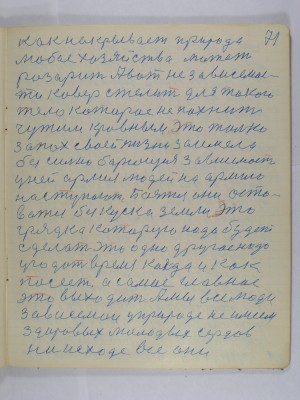 как накрывает природа 71
мабае хозяйства может
розарит Авот не зависемас-
ти ковер стелит для такого
тело которае не пахнит
чужим кровным Это толко
запох своей
бы силно барющия зависемост
у ней армия людей на армию
наступают Баяти они оста-
вати без куска земли Это
грядка которую надо будет
сделат это одно другое надо
угодат время когда и как
посеет а самае главнае
это выходит Амы все люди
зависемои у природе не имеем
здоровых молодых сердов
ни исходе все они